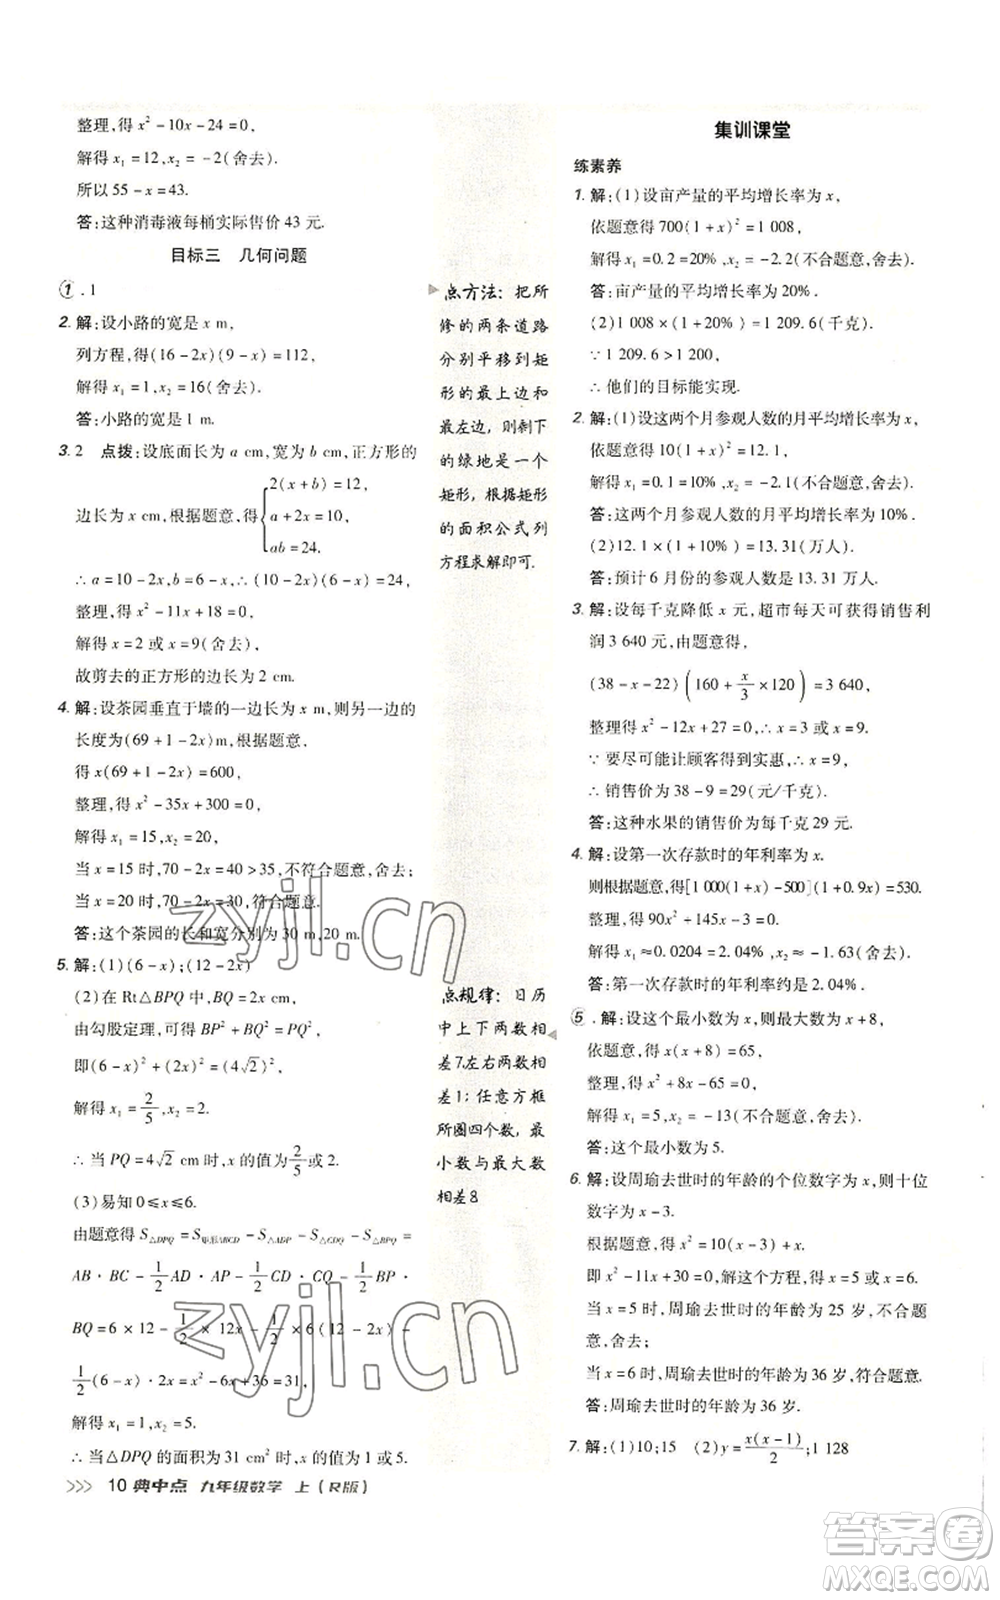 整理,得 x² −10x −24 = 0,
解得 x₁ = 12, x₂ = −2(舍去).
所以 55 − x = 43.
答:这种消毒液每桶实际售价 43 元.
目标三 几何问题
1. 1
2. 解:设小路的宽是 x m,
列方程,得(16 −2x)(9 −x) = 112,
解得 x₁ = 1, x₂ = 16(舍去).
答:小路的宽是 1 m.
3. 2 点拨:设底面长为 a cm,宽为 b cm,正方形的
边长为 x cm,根据题意,得
2(x + b) = 12,
a + 2x = 10,
ab = 24.
∴ a = 10 −2x, b = 6 − x, ∴ (10 −2x)(6 − x) = 24,
整理,得 x² −11x +18 = 0,
解得 x = 2 或 x = 9(舍去),
故剪去的正方形的边长为 2 cm.
4. 解:设茶园垂直于墙的一边长为 x m,则另一边的
长度为(69 +1 −2x)m,根据题意,
得 x(69 +1 −2x) = 600,
整理,得 x² −35x +300 = 0,
解得 x₁ = 15, x₂ = 20,
当 x = 15 时,70 −2x = 40 > 35,不符合题意,舍去;
当 x = 20 时,70 −2x = 30,符合题意.
答:这个茶园的长和宽分别为 30 m,20 m.
5. 解:(1)(6 − x);(12 −2x)
(2)在 Rt△BPQ 中,BQ = 2x cm,
由勾股定理,可得 BP² + BQ² = PQ²,
即(6 − x)² + (2x)² = (4√2)²,
解得 x₁ = 2/5, x₂ = 2.
∴ 当 PQ = 4√2 cm 时,x 的值为 2/5 或 2.
(3)易知 0≤x≤6.
由题意得 S△DPQ = S矩形ABCD − S△ADP − S△CDQ − S△BPQ =
AB · BC − 1/2 AD · AP − 1/2 CD · CQ − 1/2 BP ·
BQ = 6 × 12 − 1/2 × 12x − 1/2 × 6(12 − 2x) −
1/2(6 − x) · 2x = x² −6x +36 = 31,
解得 x₁ = 1, x₂ = 5.
∴ 当△DPQ 的面积为 31 cm² 时,x 的值为 1 或 5.
>>> 10 典中点 九年级数学 上(R版)
点方法:把所
修的两条道路
分别平移到矩
形的最上边和
最左边,则剩下
的绿地是一个
矩形,根据矩形
的面积公式列
方程求解即可.
点规律:日历
中上下两数相
差7,左右两数相
差1;任意方框
所圈四个数,最
小数与最大数
相差8
集训课堂
练素养
1. 解:(1)设亩产量的平均增长率为 x,
依题意得 700(1 + x)² = 1 008,
解得 x₁ = 0.2 = 20%, x₂ = −2.2(不合题意,舍去).
答:亩产量的平均增长率为 20%.
(2)1 008 × (1 +20%) = 1 209.6(千克).
∵ 1 209.6 > 1 200,
∴ 他们的目标能实现.
2. 解:(1)设这两个月参观人数的月平均增长率为 x,
依题意得 10(1 + x)² = 12.1,
解得 x₁ = 0.1 = 10%, x₂ = −2.1(不合题意,舍去).
答:这两个月参观人数的月平均增长率为 10%.
(2)12.1 × (1 +10%) = 13.31(万人).
答:预计 6 月份的参观人数是 13.31 万人.
3. 解:设每千克降低 x 元,超市每天可获得销售利
润 3 640 元,由题意得,
(38 − x −22)(160 + x/3 × 120) = 3 640,
整理得 x² −12x +27 = 0, ∴ x = 3 或 x = 9.
∵ 要尽可能让顾客得到实惠, ∴ x = 9,
∴ 销售价为 38 −9 = 29(元/千克).
答:这种水果的销售价为每千克 29 元.
4. 解:设第一次存款时的年利率为 x.
则根据题意,得[1 000(1 + x) −500](1 +0.9x) = 530.
整理,得 90x² +145x −3 = 0.
解得 x₁ ≈ 0.0204 = 2.04%, x₂ ≈ −1.63(舍去).
答:第一次存款时的年利率约是 2.04%.
5. 解:设这个最小数为 x,则最大数为 x + 8,
依题意,得 x(x + 8) = 65,
整理,得 x² + 8x − 65 = 0,
解得 x₁ = 5, x₂ = −13(不合题意,舍去).
答:这个最小数为 5.
6. 解:设周瑜去世时的年龄的个位数字为 x,则十位
数字为 x −3.
根据题意,得 x² = 10(x −3) + x,
即 x² −11x +30 = 0,解这个方程,得 x = 5 或 x = 6.
当 x = 5 时,周瑜去世时的年龄为 25 岁,不合题
意,舍去;
当 x = 6 时,周瑜去世时的年龄为 36 岁,符合题意.
答:周瑜去世时的年龄为 36 岁.
7. 解:(1)10;15 (2)y = x(x −1)/2;1 128
zyjl.cn
zyjl.cn
答案圈
MXQE.COM